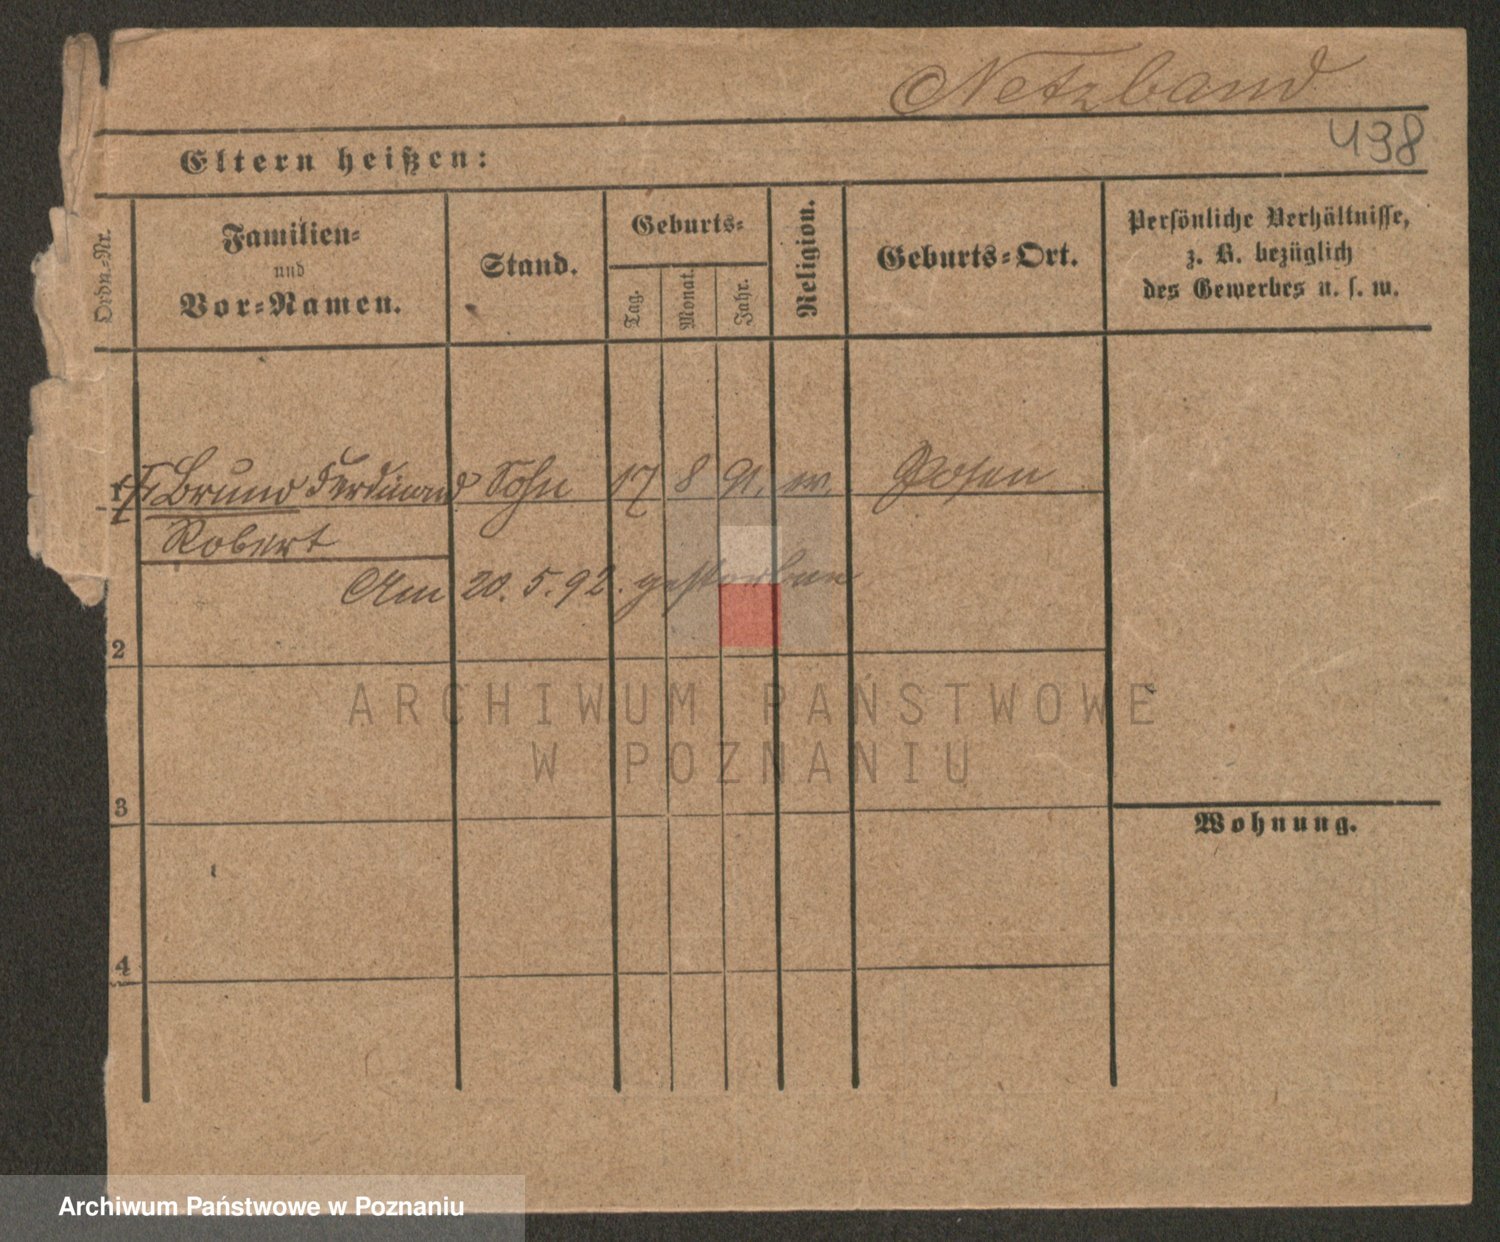 Netzband
498
Eltern heißen:
Ordn.-Nr.
Familien-
und
Vor-Namen.
Stand.
Geburts-
Tag.
Monat.
Jahr.
Religion.
Geburts-Ort.
Persönliche Verhältnisse,
z. B. bezüglich
des Gewerbes u. s. w.
1 Bruno Ferdinand Sohn 17 8 91. ev. Posen
Robert
Am 20. 5. 92. gestorben
2
ARCHIWUM PAŃSTWOWE
W POZNANIU
3
Wohnung.
4
Archiwum Państwowe w Poznaniu